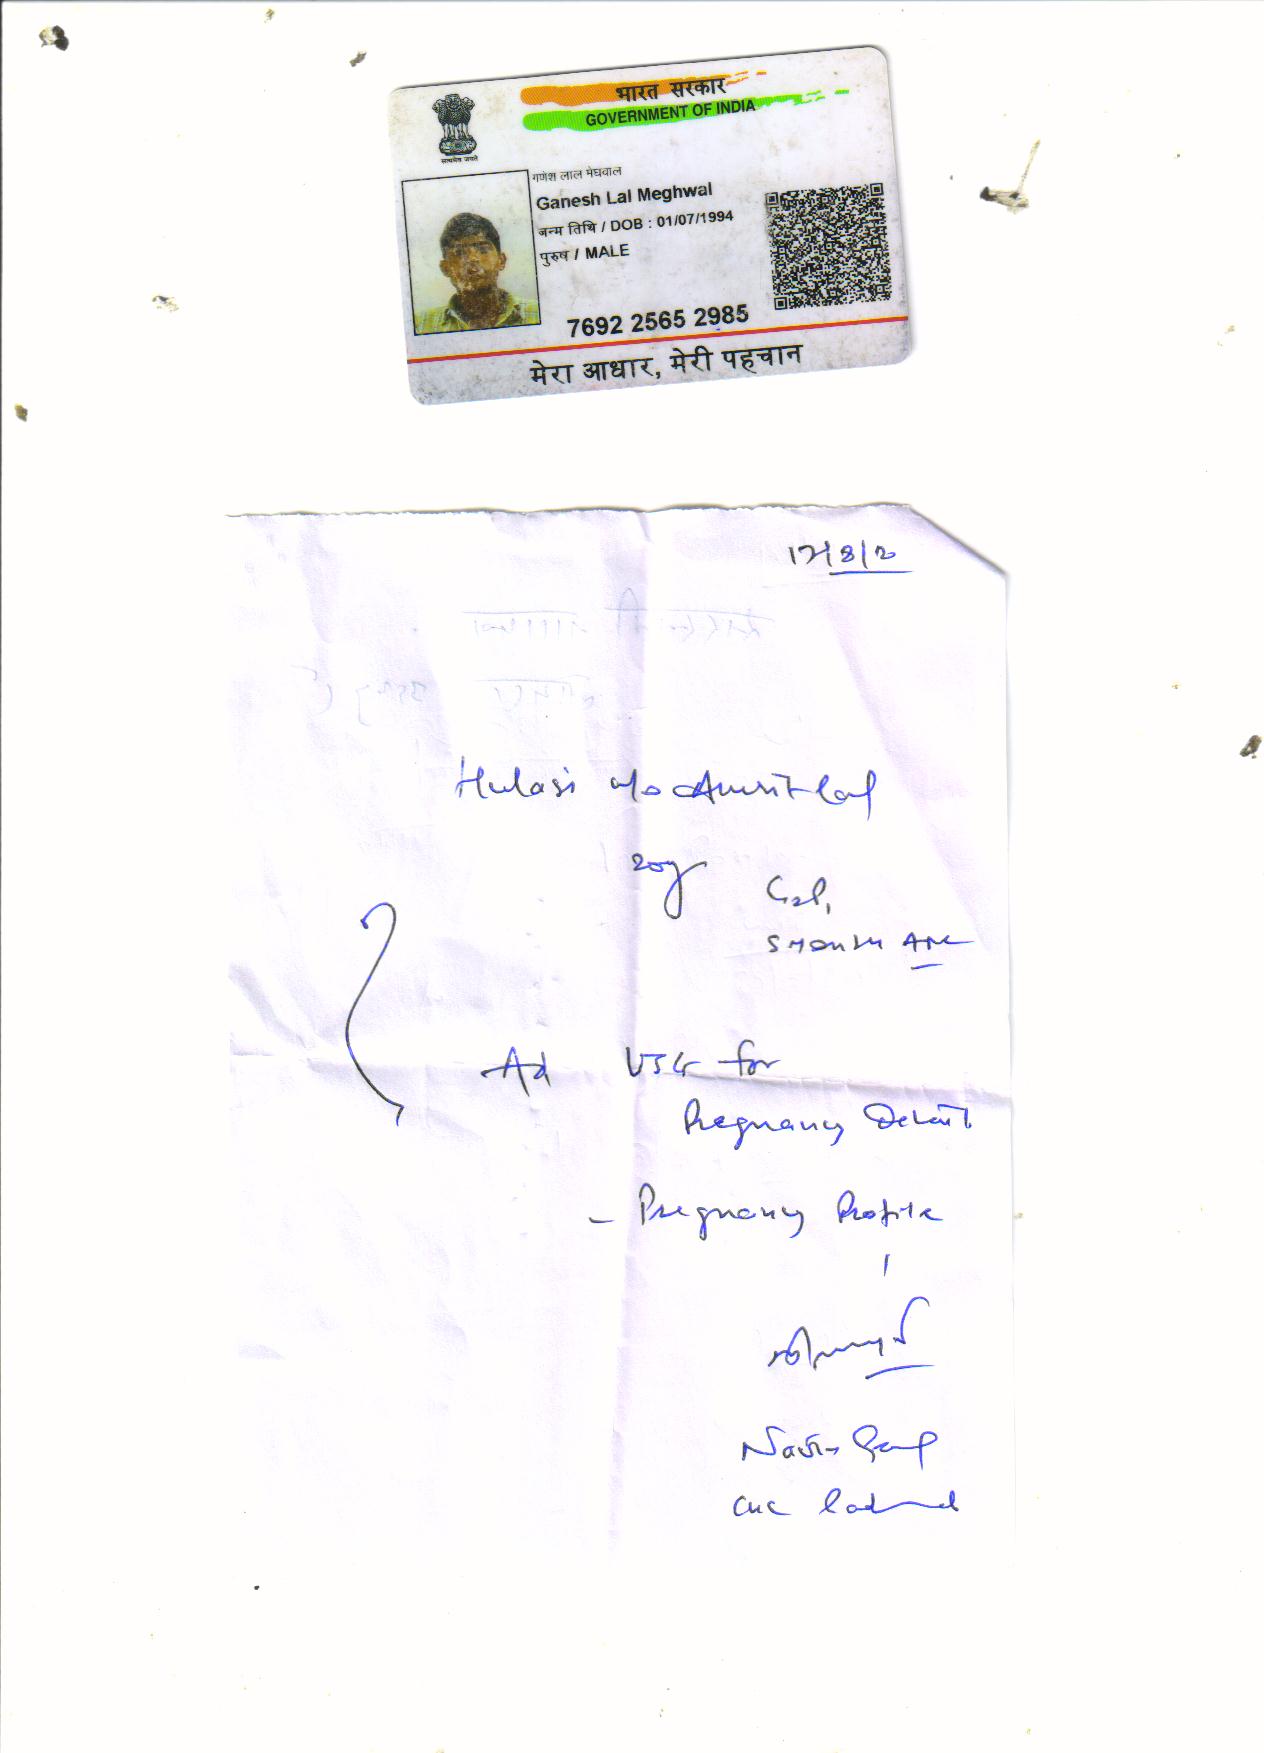 भारत सरकार
GOVERNMENT OF INDIA
सत्यमेव जयते
गणेश लाल मेघवाल
Ganesh Lal Meghwal
जन्म तिथि / DOB : 01/07/1994
पुरुष / MALE
7692 2565 2985
मेरा आधार, मेरी पहचान
17/8/2
Hulasi w/o Amrit lal
20y
G2P1
Ad USG for
Pregnancy
- Pregnancy Profile
Navin
CHC